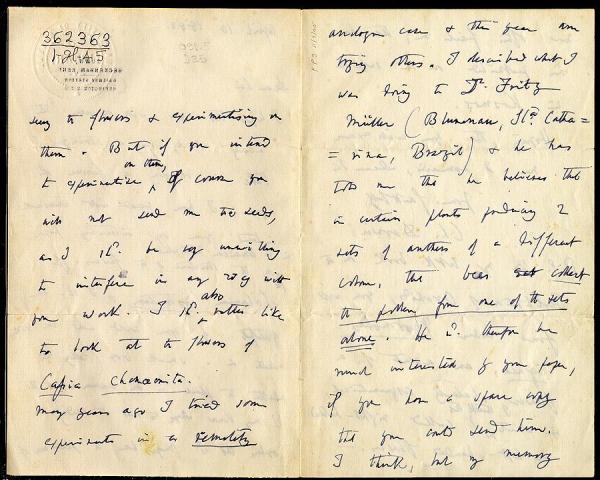 362363
1-2845
seeing the flowers & experimentising on
them. But if you intend
on them,
to experimentise, of course you
will not send me the seeds,
as I shd. be very unwilling
to interfere in any way with
your work. I shd. also rather like
to look at the flowers of
Cassia chamæcrista.
Many years ago I tried some
experiments in a remotely
analogous case & this year am
trying others. I described what I
was doing to Dr. Fritz
Müller (Blumenau, Sta Catha=
=rina, Brazil) & he has
told me that he believes that
in certain plants producing 2
sets of anthers of a different
colour, the bees collect
the pollen from one of the sets
alone. He wd. therefore be
much interested by your paper,
if you have a spare copy
that you could send him.
I think, but my memory